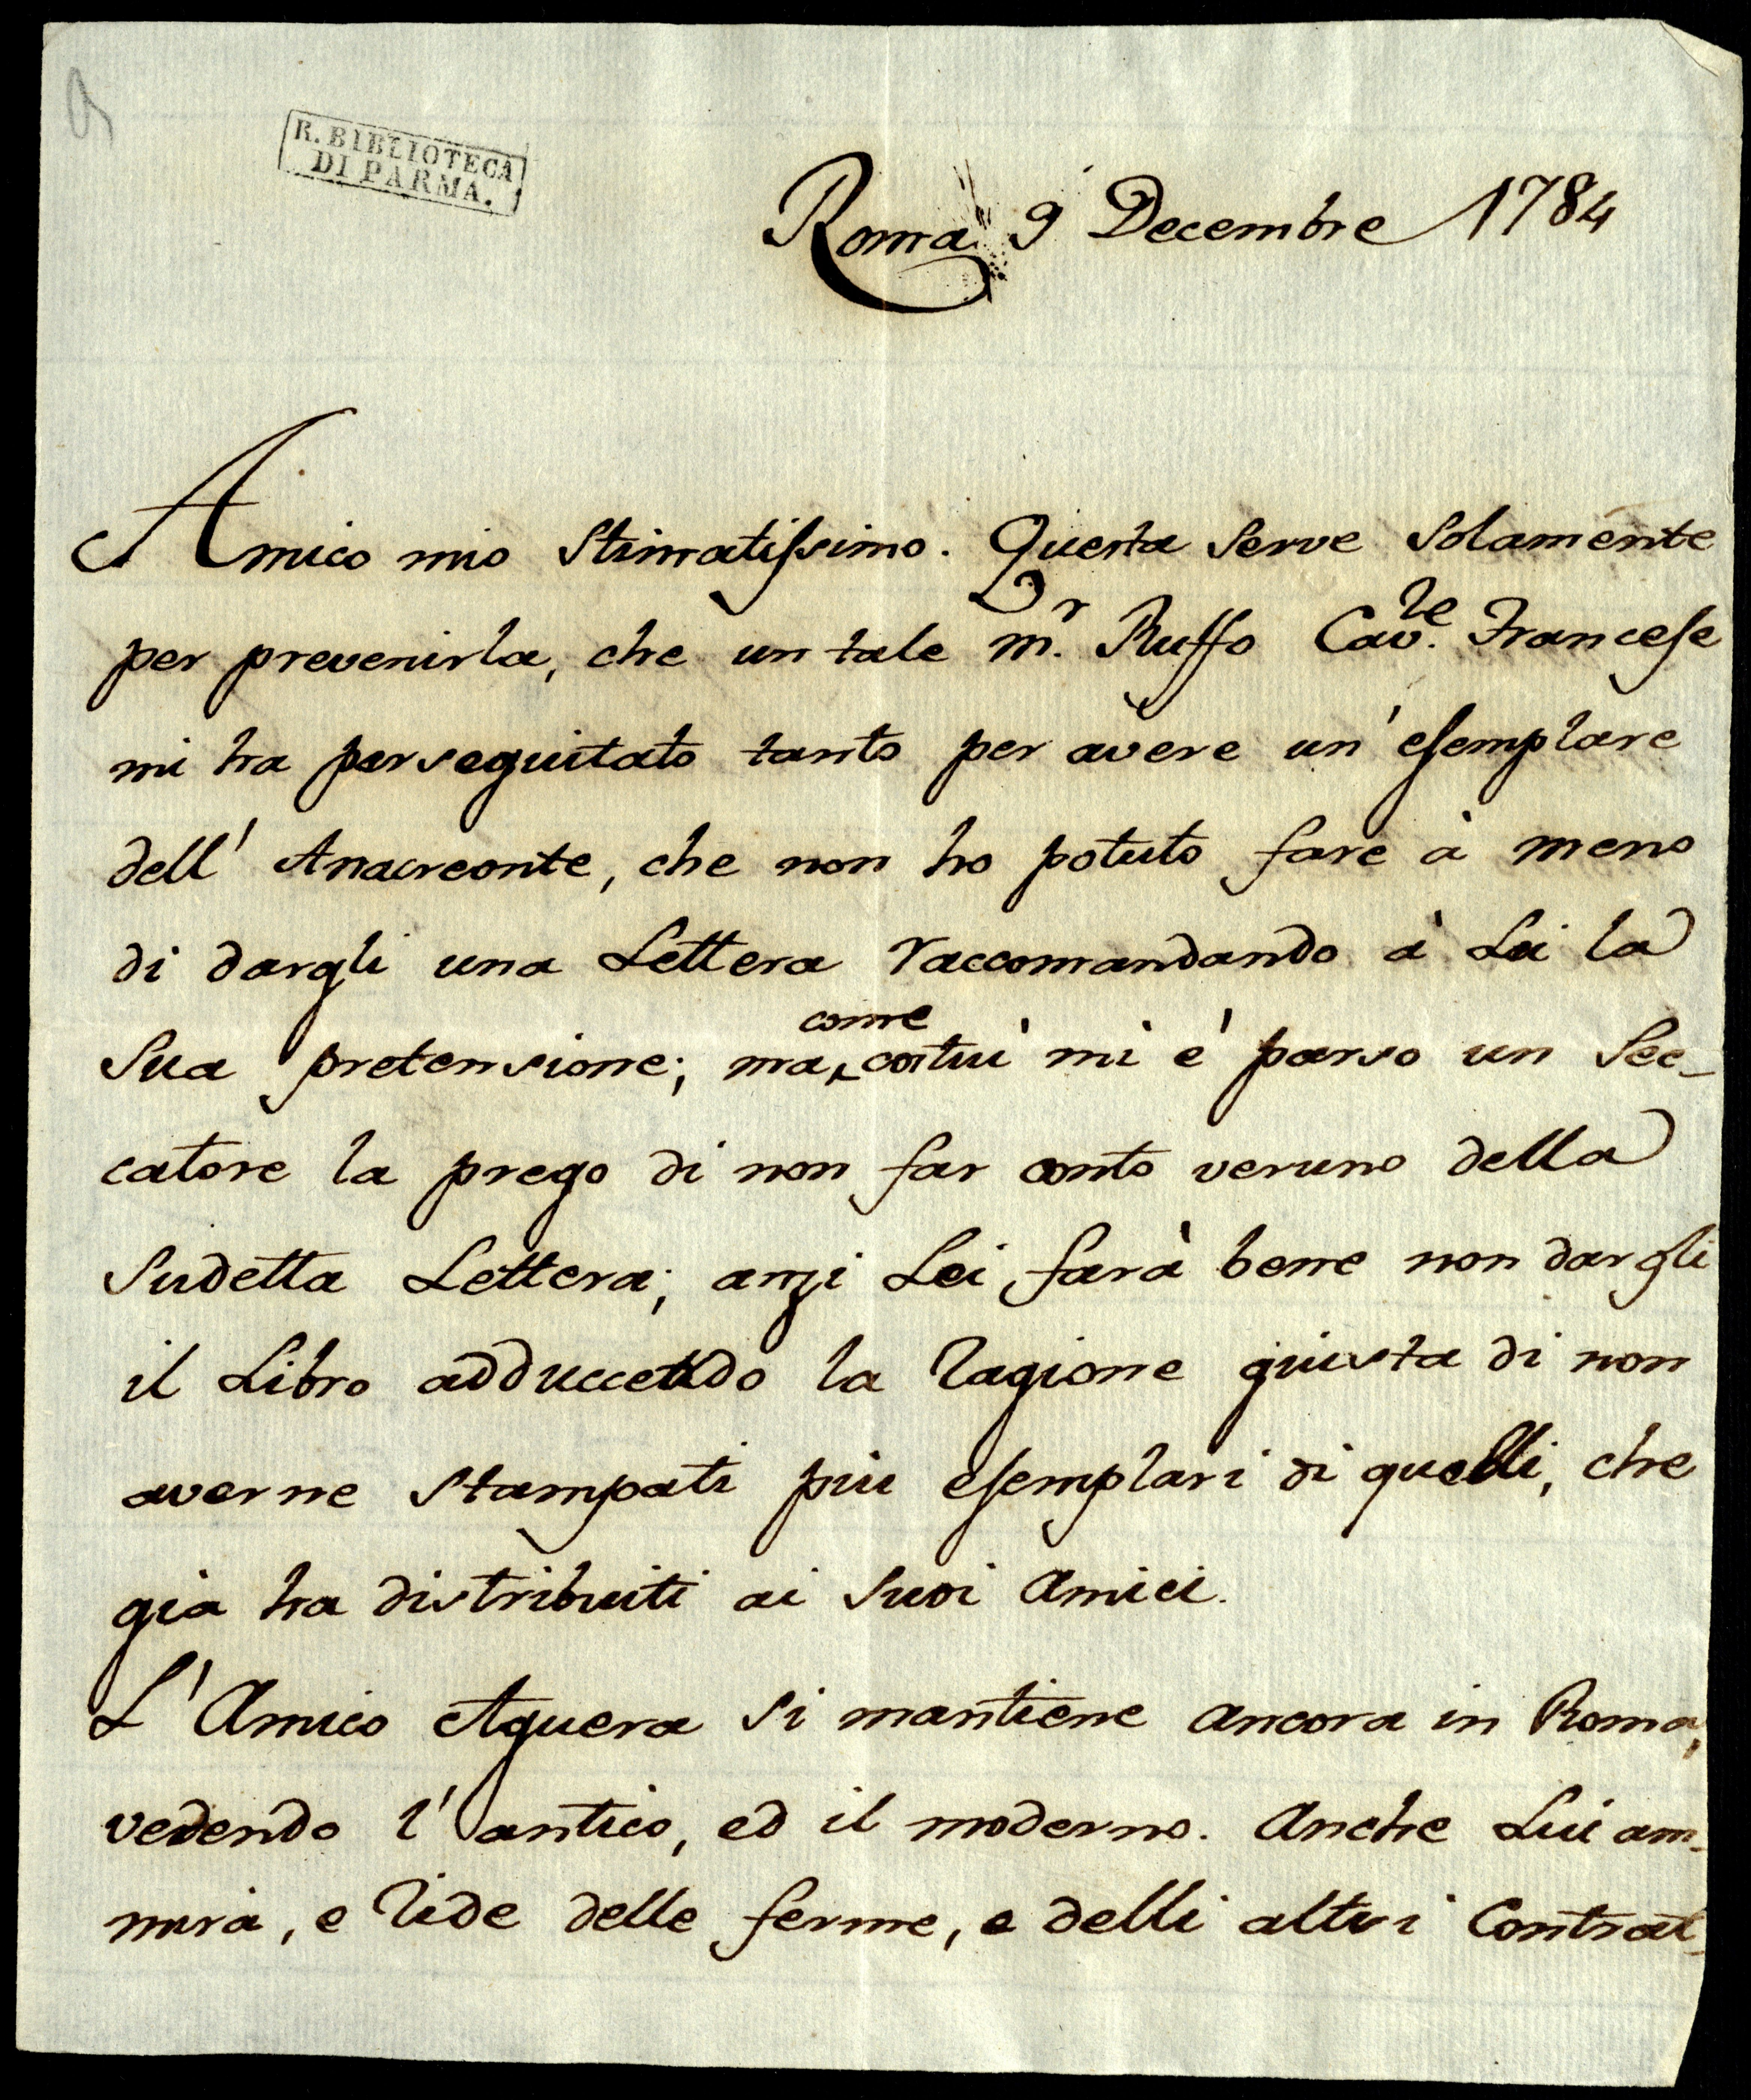 R. BIBLIOTECA
DI PARMA.
Roma 9 Decembre 1784
Amico mio Stimatissimo. Questa serve solamente
per prevenirla, che un tale Mr. Ruffo Cav.re Francese
mi ha perseguitato tanto per avere un' esemplare
dell' Anacreonte, che non ho potuto fare à meno
di dargli una Lettera raccomandando à Lei la
sua pretensione; ma come costui mi è parso un Sec-
catore la prego di non far conto veruno della
sudetta Lettera; anzi Lei farà bene non dargli
il Libro adduccendo la ragione giusta di non
averne stampati più esemplari di quelli, che
già ha distribuiti ai suoi Amici.
L' Amico Aguera si mantiene ancora in Roma,
vedendo l' antico, ed il moderno. Anche Lui am-
mira, e ride delle ferme, e delli altri Contrat-